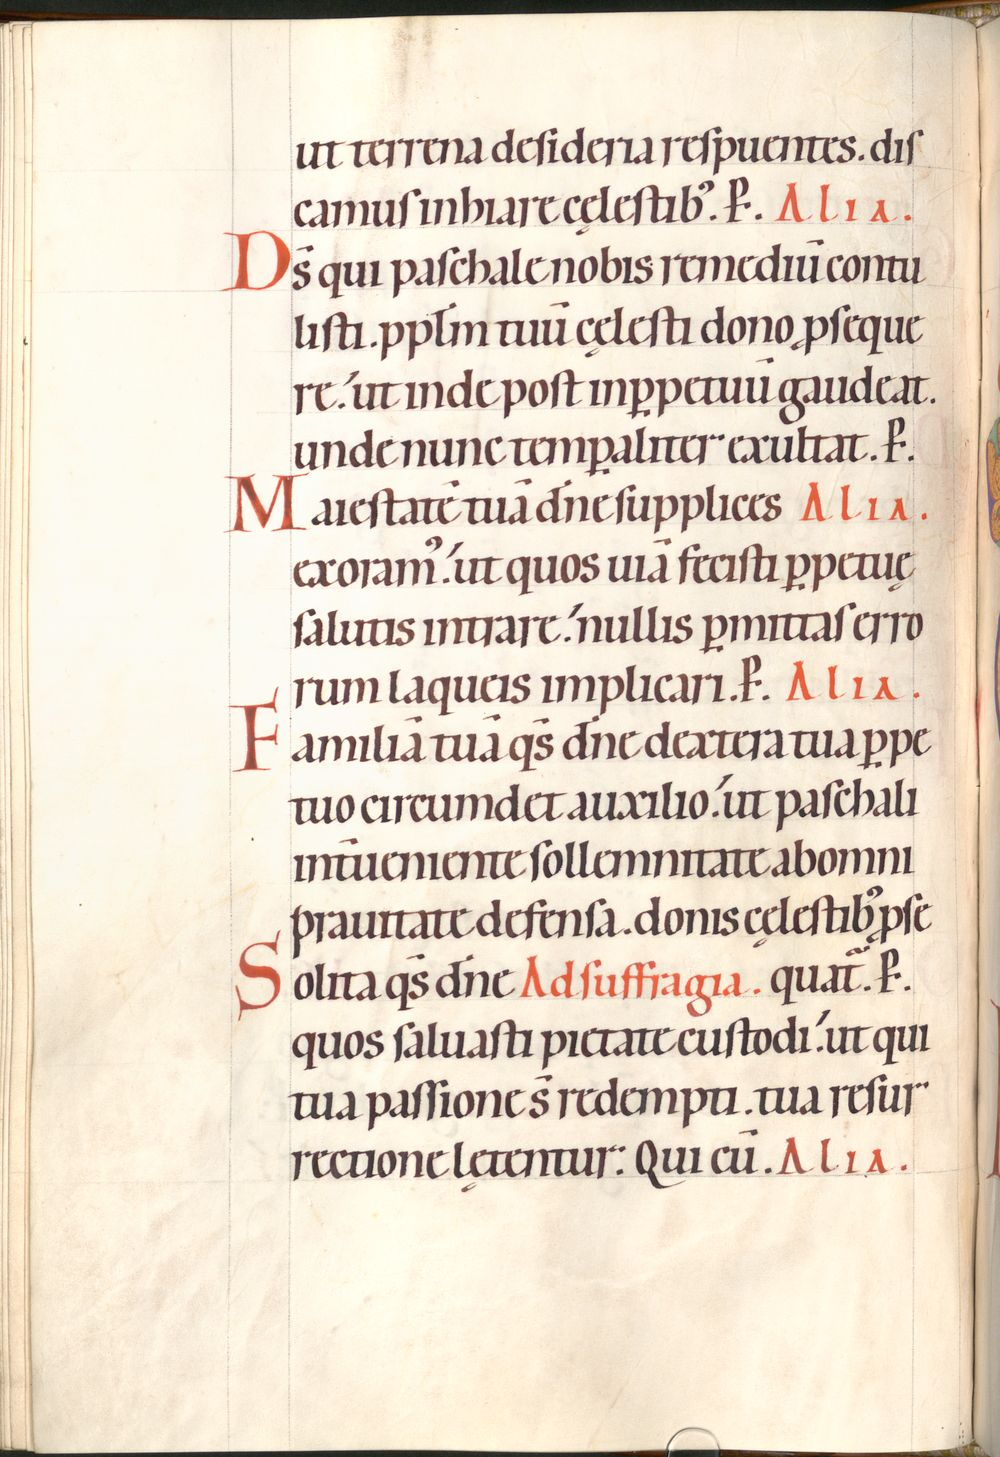 ut terrena desideria respuentes. dis
camus inhiare cęlestibꝰ. P̶. Alia.
Ds̄ qui paschale nobis remediū contu
listi. ppl̄m tuū cęlesti dono ꝓseque
re. ut inde post in ꝑpetuū gaudeat.
unde nunc temꝑaliter exultat. P̶.
Maiestatē tuā dn̄e supplices Alia.
exoramꝰ. ut quos uiā fecisti ꝑpetuę
salutis intrare. nullis ꝑmittas erro
rum laqueis implicari. P̶. Alia.
Familiā tuā qs̄ dn̄e dextera tua ꝑpe
tuo circumdet auxilio. ut paschali
int̄ueniente sollemnitate ab omni
prauitate defensa. donis cęlestibꝰ ꝓse
Solita qs̄ dn̄e Ad suffragia. quat᷑. P̶.
quos saluasti pietate custodi. ut qui
tua passione s̄ redempti. tua resur
rectione lętentur. Qui cū. Alia.